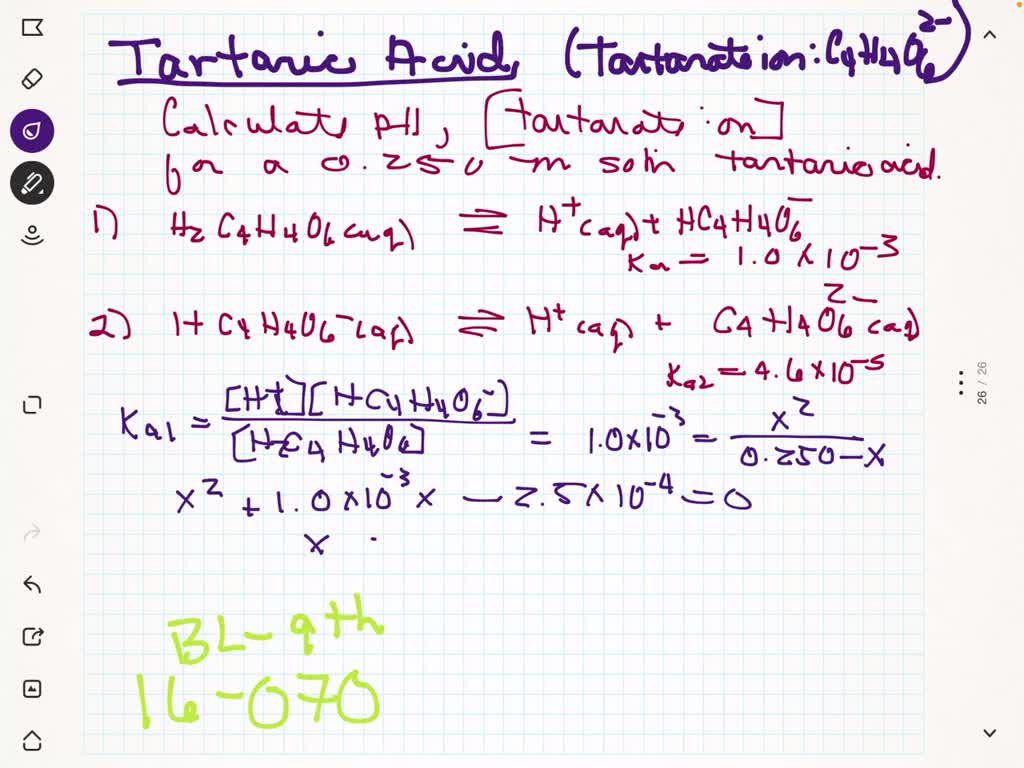 Tartaric Acid, (Tartarate ion: C4H4O6^2-)
Calculate pH, [tartarate ion]
for a 0.250 m soln tartaric acid.
1) H2C4H4O6(aq) ⇌ H+(aq) + HC4H4O6^-
Ka = 1.0 × 10^-3
2) HC4H4O6^-(aq) ⇌ H+(aq) + C4H4O6^2-(aq)
Ka2 = 4.6 × 10^-5
Ka1 = [H+][HC4H4O6^-] / [H2C4H4O6] = 1.0×10^-3 = x^2 / 0.250-x
x^2 + 1.0×10^-3 x - 2.5×10^-4 = 0
x
BL-9th
16-070
26 / 26